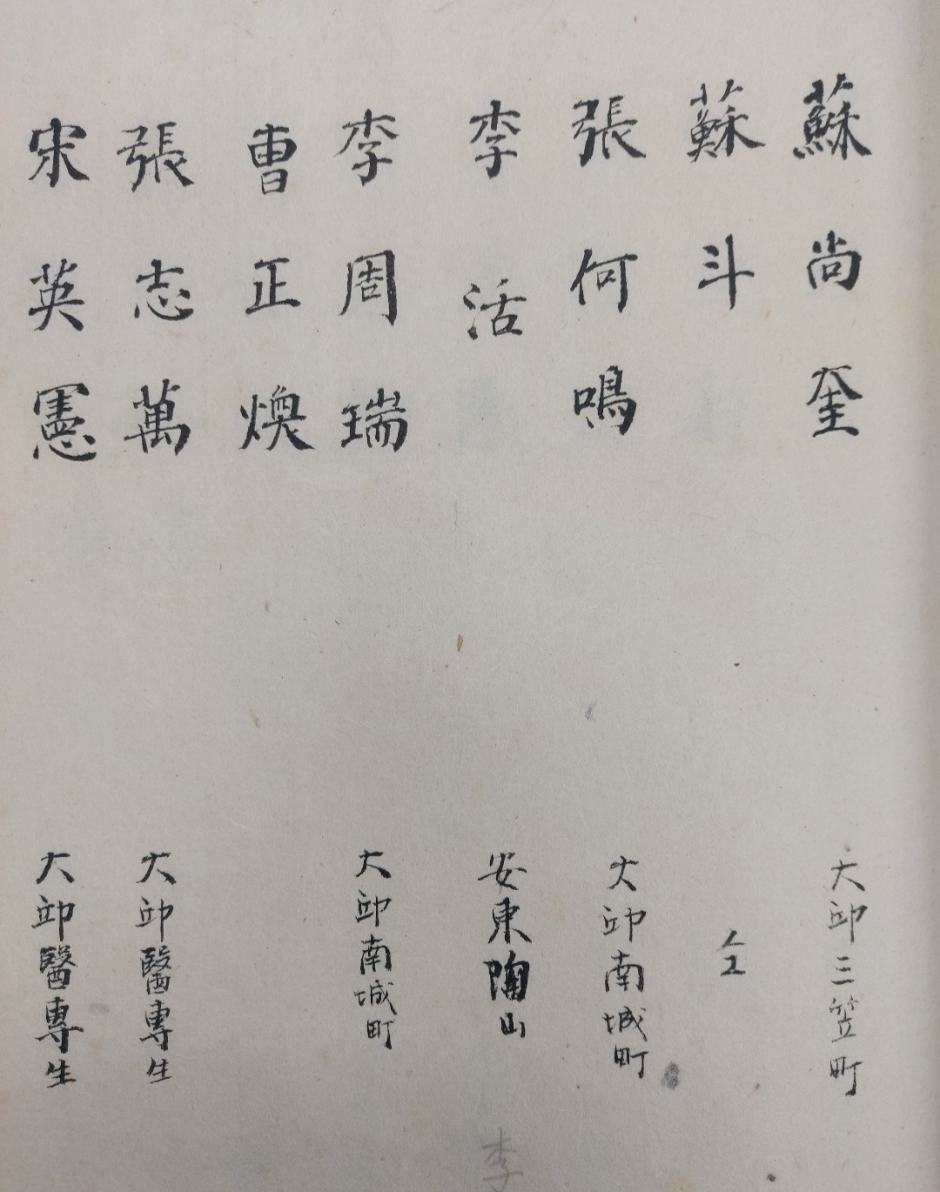 蘇尚奎 大邱三笠町
蘇斗 仝
張何鳴 大邱南城町
李活 安東陶山
李
李周瑞 大邱南城町
曺正煥
張志萬 大邱醫專生
宋英憲 大邱醫專生